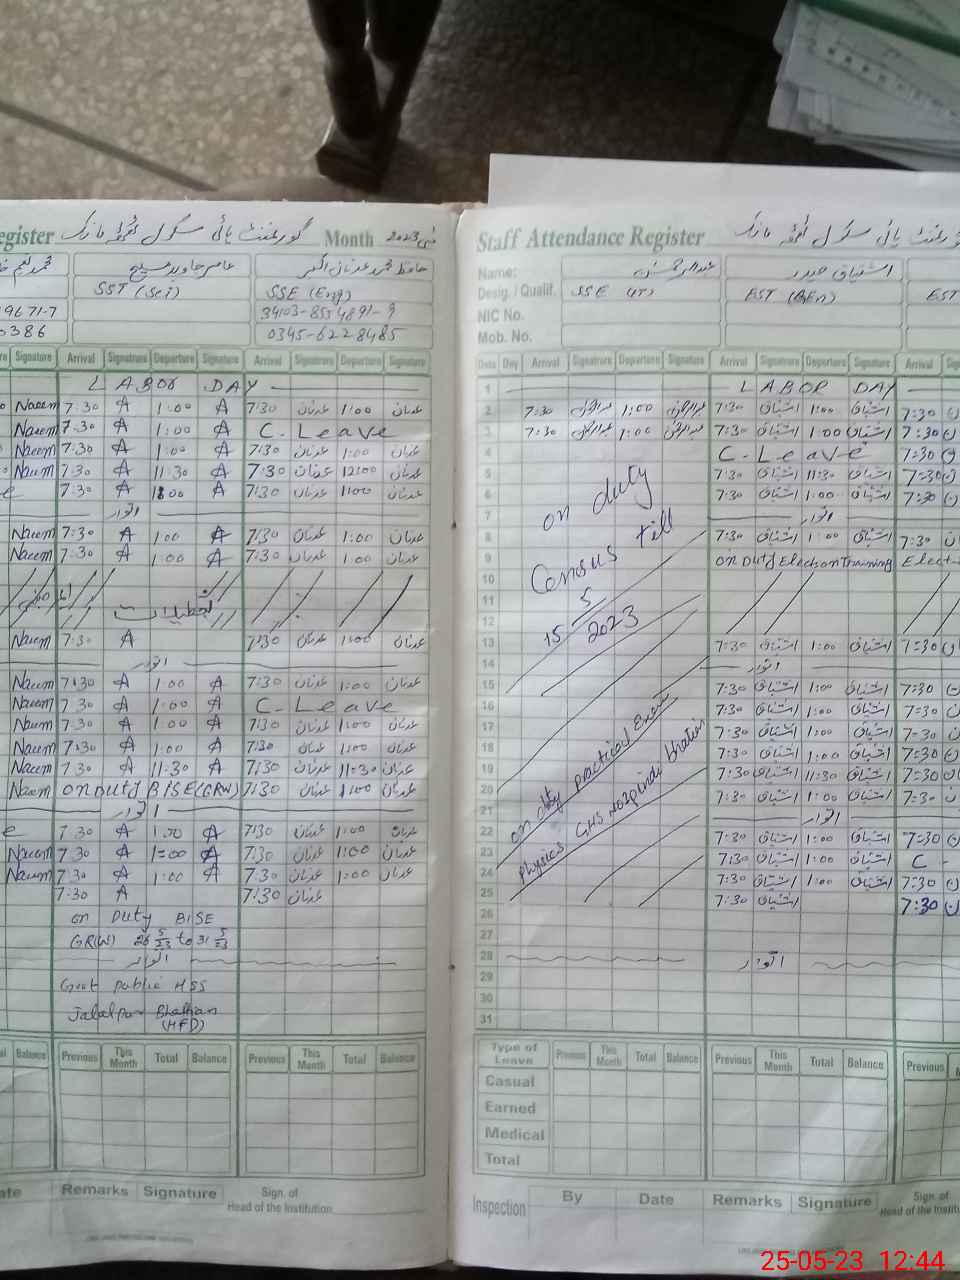 Register گورنمنٹ ہائی سکول Month مئی 2023
عامر جاوید مسیح حافظ محمد عدنان اکبر
SST (Sci) SSE (Eng)
19671-7 34103-8554891-9
0386 0345-6228485
Signature Arrival Signature Departure Signature Arrival Signature Departure Signature
LABOR DAY
Naeem 7:30 A 1:00 A 7:30 عدنان 1:00 عدنان
Naeem 7:30 A 1:00 A C-Leave
Naeem 7:30 A 1:00 A 7:30 عدنان 1:00 عدنان
Naeem 7:30 A 11:30 A 7:30 عدنان 12:00 عدنان
7:30 A 1:00 A 7:30 عدنان 1:00 عدنان
اتوار
Naeem 7:30 A 1:00 A 7:30 عدنان 1:00 عدنان
Naeem 7:30 A 1:00 A 7:30 عدنان 1:00 عدنان
تعطیلات
Naeem 7:30 A 7:30 عدنان 1:00 عدنان
اتوار
Naeem 7:30 A 1:00 A 7:30 عدنان 1:00 عدنان
Naeem 7:30 A 1:00 A C-Leave
Naeem 7:30 A 1:00 A 7:30 عدنان 1:00 عدنان
Naeem 7:30 A 1:00 A 7:30 عدنان 1:00 عدنان
Naeem 7:30 A 11:30 A 7:30 عدنان 11:30 عدنان
Naeem on Duty BISE (GRW) 7:30 عدنان 1:00 عدنان
اتوار
7:30 A 1:00 A 7:30 عدنان 1:00 عدنان
Naeem 7:30 A 1:00 A 7:30 عدنان 1:00 عدنان
Naeem 7:30 A 1:00 A 7:30 عدنان 1:00 عدنان
7:30 A 7:30 عدنان
on Duty BISE
GR(W) 26 5/23 to 31 5/23
اتوار
Govt public HSS
Jalalpur Bhattian
(HFD)
Balance Previous This Month Total Balance Previous This Month Total Balance
Remarks Signature Sign. of
Head of the Institution
Staff Attendance Register گورنمنٹ ہائی سکول
Name: عبدالرحمٰن اشتیاق حیدر
Desig. / Qualif. SSE (IT) EST (BEn) EST
NIC No.
Mob. No.
Date Day Arrival Signature Departure Signature Arrival Signature Departure Signature Arrival
1 LABOR DAY
2 7:30 عبدالرحمٰن 1:00 عبدالرحمٰن 7:30 اشتیاق 1:00 اشتیاق 7:30
3 7:30 عبدالرحمٰن 1:00 عبدالرحمٰن 7:30 اشتیاق 1:00 اشتیاق 7:30
4 C-Leave 7:30
5 7:30 اشتیاق 11:30 اشتیاق 7:30
6 on duty 7:30 اشتیاق 1:00 اشتیاق 7:30
7 اتوار
8 Census till 7:30 اشتیاق 1:00 اشتیاق 7:30
9 on Duty Election Training
10
11 15 5
12 2023
13 7:30 اشتیاق 1:00 اشتیاق 7:30
14 اتوار
15 7:30 اشتیاق 1:00 اشتیاق 7:30
16 7:30 اشتیاق 1:00 اشتیاق 7:30
17 7:30 اشتیاق 1:00 اشتیاق 7:30
18 7:30 اشتیاق 1:00 اشتیاق 7:30
19 7:30 اشتیاق 11:30 اشتیاق 7:30
20 on duty practical Exam 7:30 اشتیاق 1:00 اشتیاق 7:30
21 اتوار
22 Physics GHS 7:30 اشتیاق 1:00 اشتیاق 7:30
23 7:30 اشتیاق 1:00 اشتیاق C -
24 7:30 اشتیاق 1:00 اشتیاق 7:30
25 7:30 اشتیاق 7:30
26
27
28 اتوار
29
30
31
Type of Leave Previous This Month Total Balance Previous This Month Total Balance Previous
Casual
Earned
Medical
Total
Inspection By Date Remarks Signature Sign. of
Head of the Institution
25-05-23 12:44